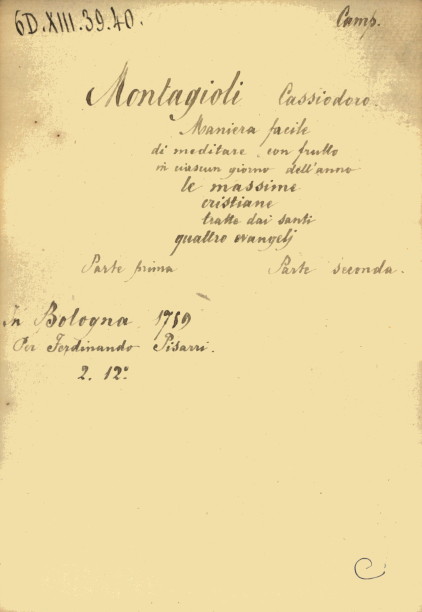 6D.XIII.39.40.
Camp.
Montagioli Cassiodoro.
Maniera facile
di meditare con frutto
in ciascun giorno dell'anno
le massime
cristiane
tratte dai santi
quattro evangelj
Parte prima Parte seconda.
In Bologna 1759
Per Ferdinando Pisarri.
2. 12°